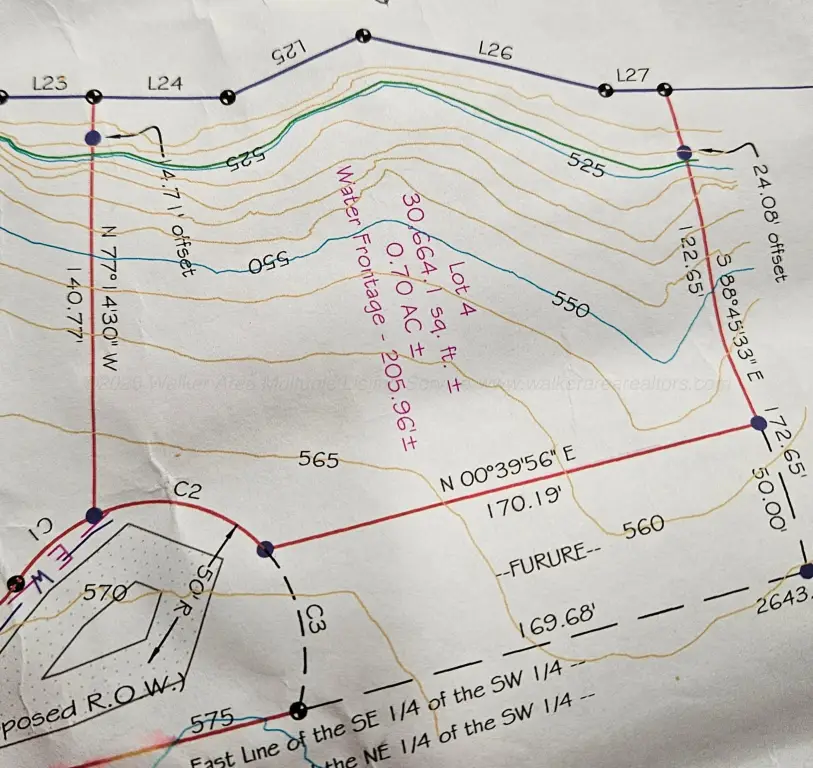 L23
L24
L25
L26
L27
14.71' offset
525
525
24.08' offset
N 77°14'30" W
140.77'
550
550
Lot 4
30,664.1 sq. ft. ±
0.70 AC ±
Water Frontage - 205.96'±
122.65'
S 88°45'33" E
172.65'
50.00'
565
N 00°39'56" E
170.19'
560
--FURURE--
C1
C2
C3
E
W
570
50' R
169.68'
2643.
posed R.O.W.)
575
East Line of the SE 1/4 of the SW 1/4 --
the NE 1/4 of the SW 1/4 --